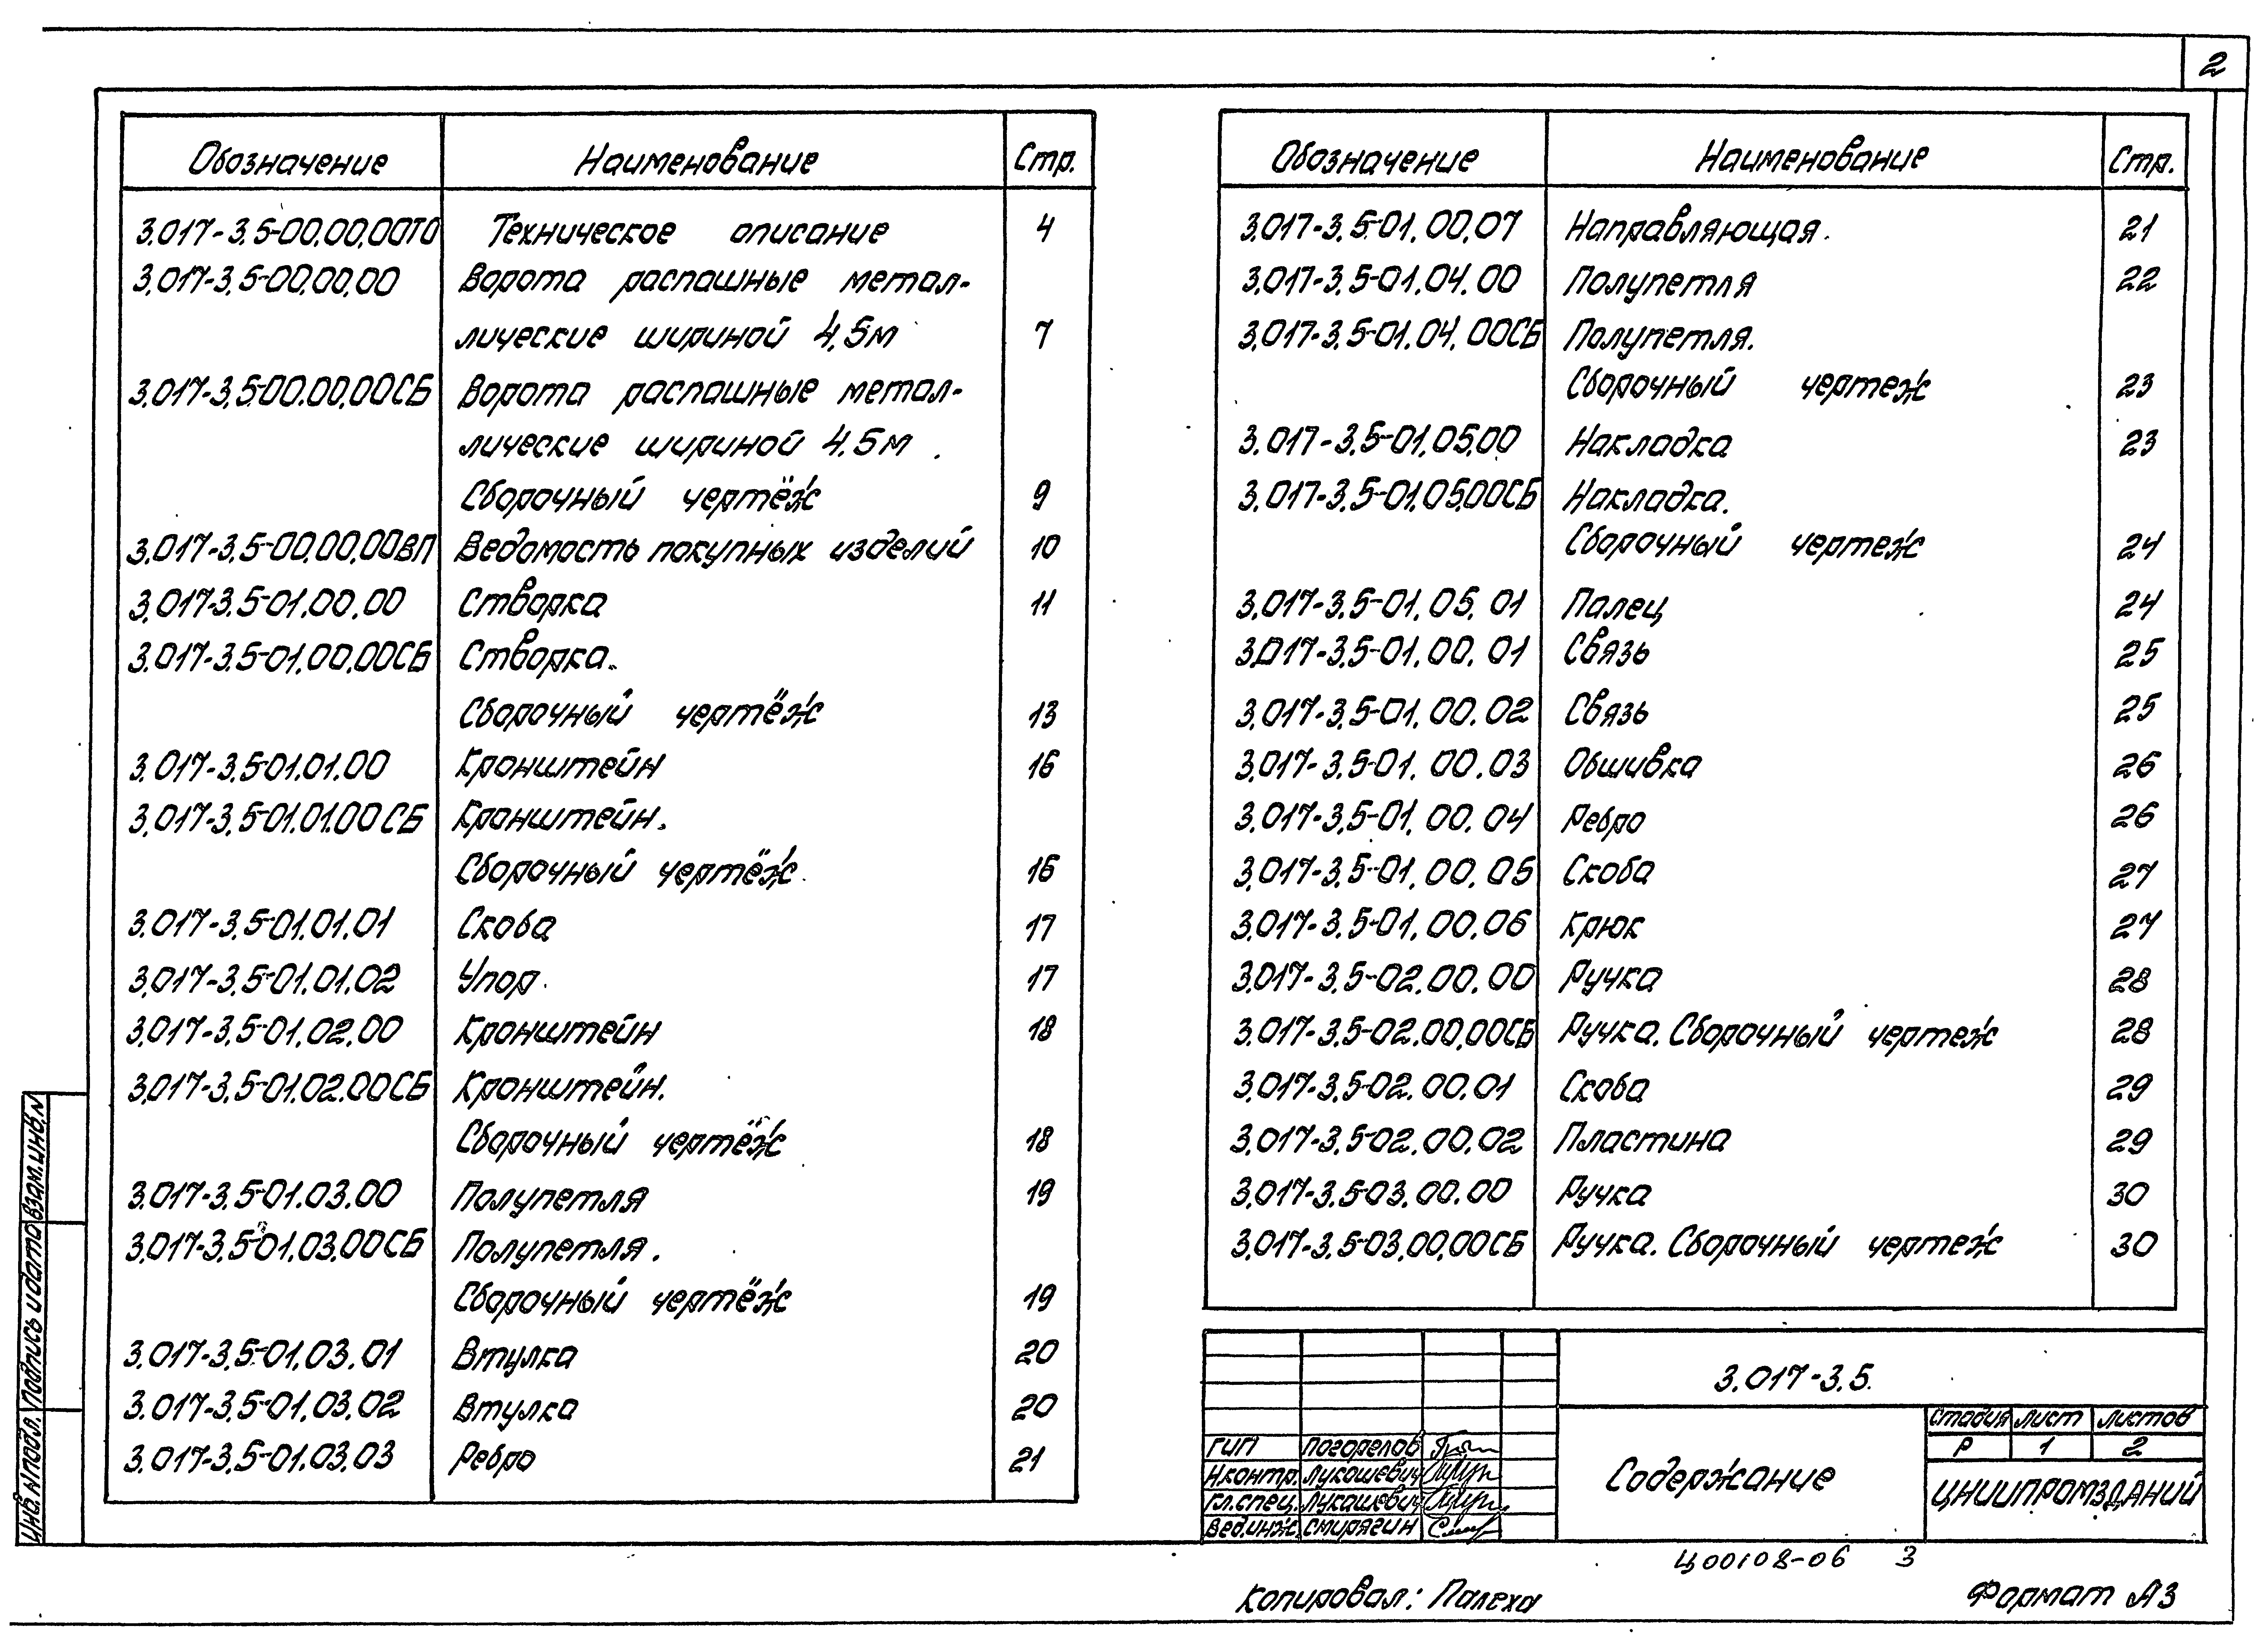 2
Обозначение Наименование Стр.
3.017-3.5-00.00.00ТО Техническое описание 4
3.017-3.5-00.00.00 Ворота распашные метал-
лические шириной 4.5м 7
3.017-3.5-00.00.00СБ Ворота распашные метал-
лические шириной 4.5м.
Сборочный чертёж 9
3.017-3.5-00.00.00ВП Ведомость покупных изделий 10
3.017-3.5-01.00.00 Створка 11
3.017-3.5-01.00.00СБ Створка.
Сборочный чертёж 13
3.017-3.5-01.01.00 Кронштейн 16
3.017-3.5-01.01.00СБ Кронштейн.
Сборочный чертёж 16
3.017-3.5-01.01.01 Скоба 17
3.017-3.5-01.01.02 Упор 17
3.017-3.5-01.02.00 Кронштейн 18
3.017-3.5-01.02.00СБ Кронштейн.
Сборочный чертёж 18
3.017-3.5-01.03.00 Полупетля 19
3.017-3.5-01.03.00СБ Полупетля.
Сборочный чертёж 19
3.017-3.5-01.03.01 Втулка 20
3.017-3.5-01.03.02 Втулка 20
3.017-3.5-01.03.03 Ребро 21
Обозначение Наименование Стр.
3.017-3.5-01.00.07 Направляющая 21
3.017-3.5-01.04.00 Полупетля 22
3.017-3.5-01.04.00СБ Полупетля.
Сборочный чертеж 23
3.017-3.5-01.05.00 Накладка 23
3.017-3.5-01.05.00СБ Накладка.
Сборочный чертеж 24
3.017-3.5-01.05.01 Палец 24
3.017-3.5-01.00.01 Связь 25
3.017-3.5-01.00.02 Связь 25
3.017-3.5-01.00.03 Обшивка 26
3.017-3.5-01.00.04 Ребро 26
3.017-3.5-01.00.05 Скоба 27
3.017-3.5-01.00.06 Крюк 27
3.017-3.5-02.00.00 Ручка 28
3.017-3.5-02.00.00СБ Ручка. Сборочный чертеж 28
3.017-3.5-02.00.01 Скоба 29
3.017-3.5-02.00.02 Пластина 29
3.017-3.5-03.00.00 Ручка 30
3.017-3.5-03.00.00СБ Ручка. Сборочный чертеж 30
3.017-3.5
Стадия Лист Листов
Р 1 2
Содержание
ЦНИИПРОМЗДАНИЙ
ГИП Погорелов
Н.контр. Лукашевич
Гл.спец. Лукашевич
Вед.инж. Смирягин
Инв.№подл. Подпись и дата Взам.инв.№
Ц00108-06 3
Копировал: Палеха
Формат А3